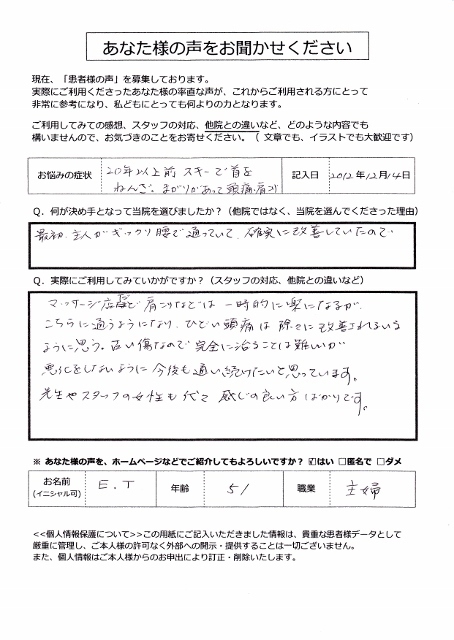 あなた様の声をお聞かせください
現在、「患者様の声」を募集しております。
実際にご利用くださったあなた様の率直な声が、これからご利用される方にとって
非常に参考になり、私どもにとっても何よりの力となります。
ご利用してみての感想、スタッフの対応、他院との違いなど、どのような内容でも
構いませんので、お気づきのことをお寄せください。（ 文章でも、イラストでも大歓迎です）
お悩みの症状
20年以上前 スキーで首を
ねんざ。まがりがあって頭痛・肩コリ
記入日
2012年12月14日
Q．何が決め手となって当院を選びましたか？（他院ではなく、当院を選んでくださった理由）
最初、主人がギックリ腰で通っていて、確実に改善していたので
Q．実際にご利用してみていかがですか？（スタッフの対応、他院との違いなど）
マッサージ店などで肩こりなどは一時的に楽になるが、
こちらに通うようになり、ひどい頭痛は徐々に改善されている
ように思う。古い傷なので完全に治ることは難しいが
悪化をしないように今後も通い続けたいと思っています。
先生やスタッフの女性も 感じの良い方ばかりです。
※ あなた様の声を、ホームページなどでご紹介してもよろしいですか？ ☑はい □匿名で □ダメ
お名前
(イニシャル可)
E.T
年齢
51
職業
主婦
<<個人情報保護について>>この用紙にご記入いただきました情報は、貴重な患者様データとして
厳重に管理し、ご本人様の許可なく外部への開示・提供することは一切ございません。
また、個人情報はご本人様からのお申出により訂正・削除いたします。